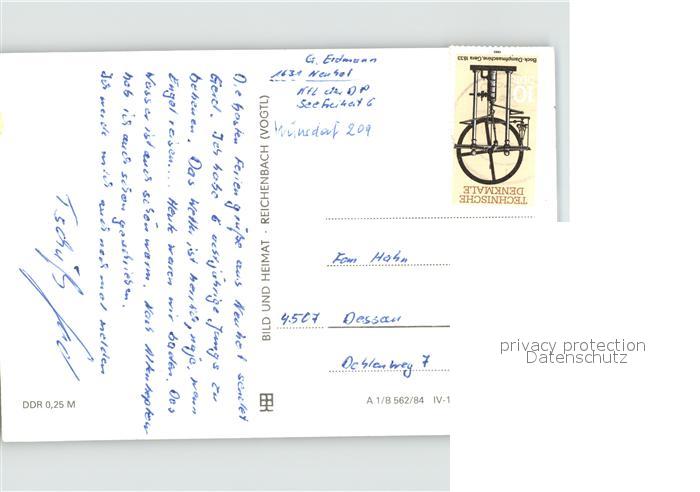 G. Erdmann
1631 Neuhof
KfL der DP
Seefreiheit 6
Wünsdorf 209
Bock-Dampfmaschine, Gera 1833
10
DDR
TECHNISCHE
DENKMALE
Die besten Feriengrüße aus Neuhof sendet
Gerd. Ich habe 6 jährige Jungs zu
betreuen. Das Wetter ist herrlich, naja, wenn
Engel reisen... Heute waren wir baden. Das
Wasser ist auch schön warm. Nach
hab ich auch schon geschrieben.
Ich werde mich auch noch mal melden
Tschüß
BILD UND HEIMAT · REICHENBACH (VOGTL)
Fam Hahn
4507 Dessau
7
DDR 0,25 M
A 1/B 562/84 IV-1
privacy protection
Datenschutz